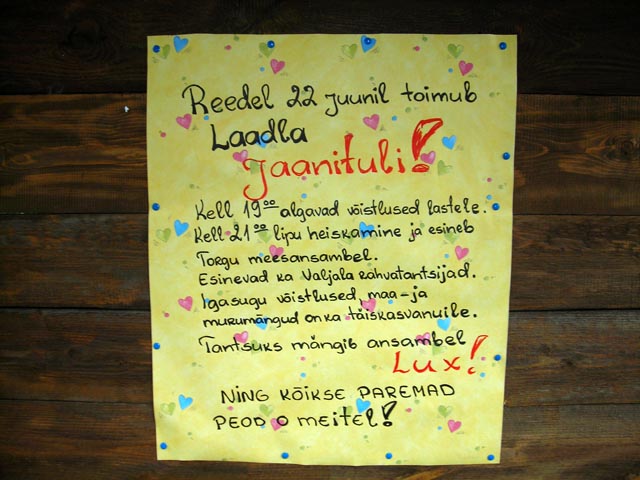 Reedel 22 juunil toimub
Laadla
Jaanituli!
Kell 19⁰⁰ algavad võistlused lastele.
Kell 21⁰⁰ lipu heiskamine ja esineb
Torgu meesansambel.
Esinevad ka Valjala rahvatantsijad.
Igasugu võistlused, maa- ja
murumängud on ka täiskasvanuile.
Tantsuks mängib ansambel
Lux!
NING KÕIKSE PAREMAD
PEOD O meitel!